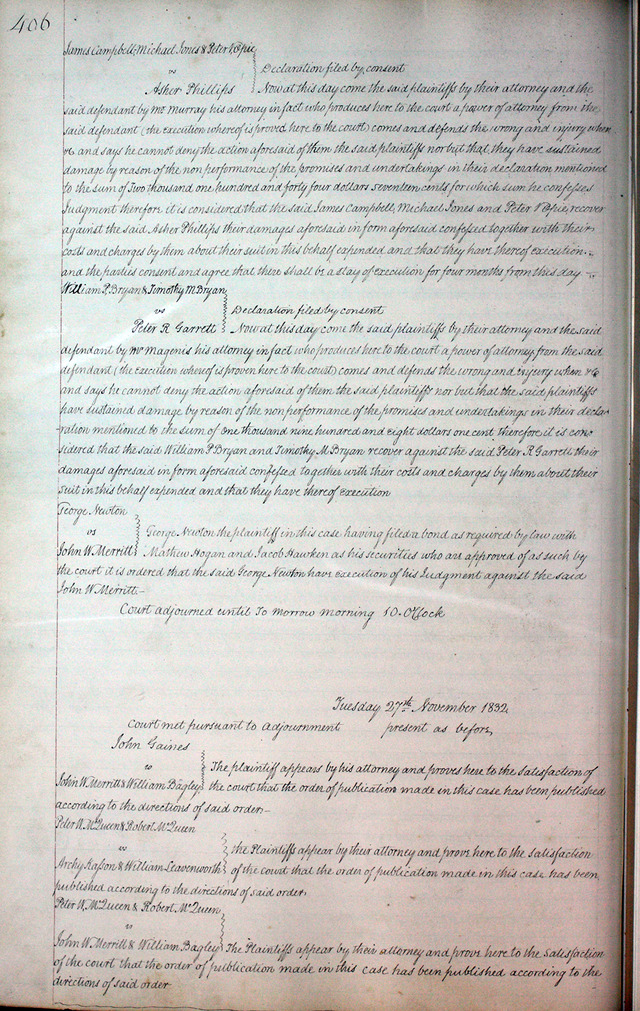 406
James Campbell, Michael Jones & Peter
vs
Declaration filed by consent
Asher Phillips Now at this day come the said plaintiffs by their attorney and the
said defendant by Mr Murray his attorney in fact who produces here to the court a power of attorney from the
said defendant (the execution whereof is proved here to the court) comes and defends the wrong and injury when
&c and says he cannot deny the action aforesaid of them the said plaintiffs nor but that, they have sustained
damage by reason of the non performance of the promises and undertakings in their declaration mentioned
to the sum of Two thousand one hundred and forty four dollars seventeen cents for which sum he confesses
Judgment therefore it is considered that the said James Campbell, Michael Jones and Peter recover
against the said Asher Phillips their damages aforesaid in form aforesaid confessed together with their
costs and charges by them about their suit in this behalf expended and that they have thereof execution.
and the parties consent and agree that there shall be a stay of execution for four months from this day
William P. Bryan & Timothy M Bryan
vs
Declaration filed by consent
Peter R Garrett Now at this day come the said plaintiffs by their attorney and the said
defendant by Mr Magenis his attorney in fact who produces here to the court a power of attorney from the said
defendant (the execution whereof is proven here to the court) comes and defends the wrong and injury when &c
and says he cannot deny the action aforesaid of them the said plaintiffs nor but that the said plaintiffs
have sustained damage by reason of the nonperformance of the promises and undertakings in their decla-
-ration mentioned to the sum of one thousand nine hundred and eight dollars one cent therefore it is con-
sidered that the said William P Bryan and Timothy M Bryan recover against the said Peter R Garrett their
damages aforesaid in form aforesaid confessed together with their costs and charges by them about their
suit in this behalf expended and that they have thereof execution
George Newton
vs George Newton the plaintiff in this case having filed a bond as required by law with
John W Merritt Mathew Hogan and Jacob Hawken as his securities who are approved of as such by
the court it is ordered that the said George Newton have execution of his Judgment against the said
John W. Merritt.—
Court adjourned until To morrow morning 10. OClock
Tuesday 27th November 1832
Court met pursuant to adjournment present as before,
John Gaines
vs The plaintiff appears by his attorney and proves here to the satisfaction of
John W. Merritt & William Bagley the court that the order of publication made in this case has been published
according to the directions of said order—
Peter W. McQueen & Robert McQueen
vs the Plaintiffs appear by their attorney and prove here to the satisfaction
Archy Kasson & William Leavenworth of the court that the order of publication made in this case has been
published according to the directions of said order,
Peter W. McQueen & Robert McQueen
vs
John W. Merritt & William Bagley The Plaintiffs appear by their attorney and prove here to the satisfaction
of the court that the order of publication made in this case has been published according to the
directions of said order